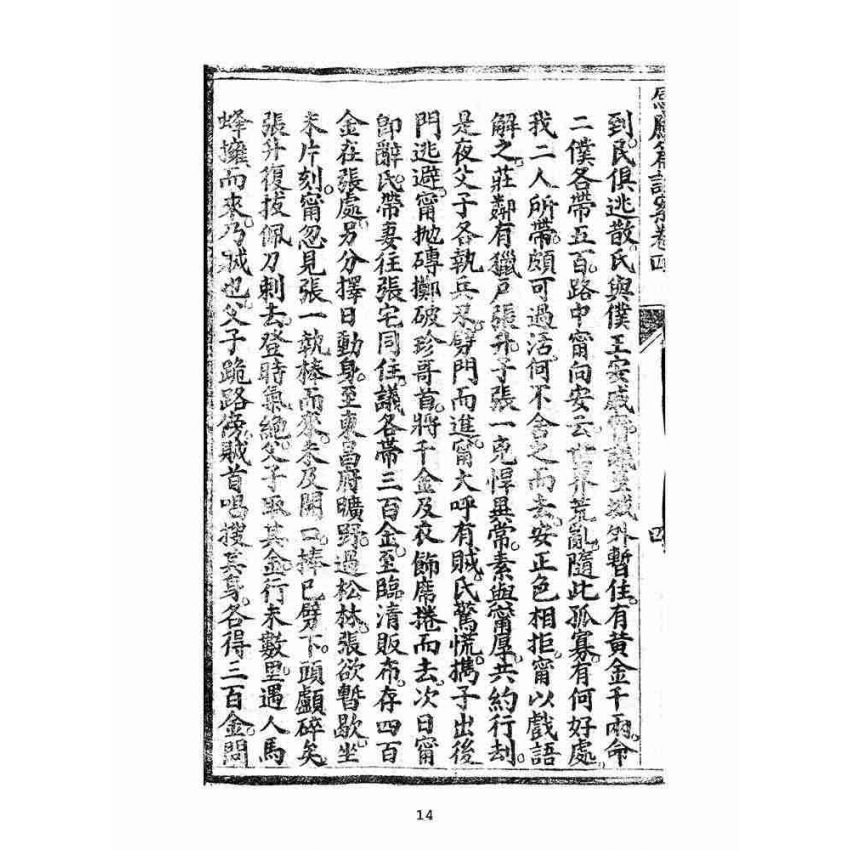 感應篇註案卷四
四
到。民俱逃散。氏與僕王安戚甯議至城外暫住。有黃金千兩。命
二僕各帶五百。路中甯向安云。世界荒亂。隨此孤寡。有何好處。
我二人所帶。頗可過活。何不舍之而去。安正色相拒。甯以戲語
解之。莊鄰有獵戶張升。子張一兇悍異常。素與甯厚。共約行刦。
是夜父子各執兵刃。劈門而進。甯大呼有賊。氏驚慌。擕子出後
門逃避。甯拋磚擲破珍哥首。將千金及衣飾席捲而去。次日甯
卽辭氏。帶妻往張宅同住。議各帶三百金。至臨清販布。存四百
金在張處。另分擇日動身。至東昌府曠野。過松林。張欲暫歇。坐
未片刻。甯忽見張一執棒而來。未及開口。棒已劈下。頭顱碎矣。
張升復拔佩刀刺去。登時氣絕。父子取其金。行未數里。遇人馬
蜂擁而來。乃賊也。父子跪路傍。賊首喝搜其身。各得三百金。問
14